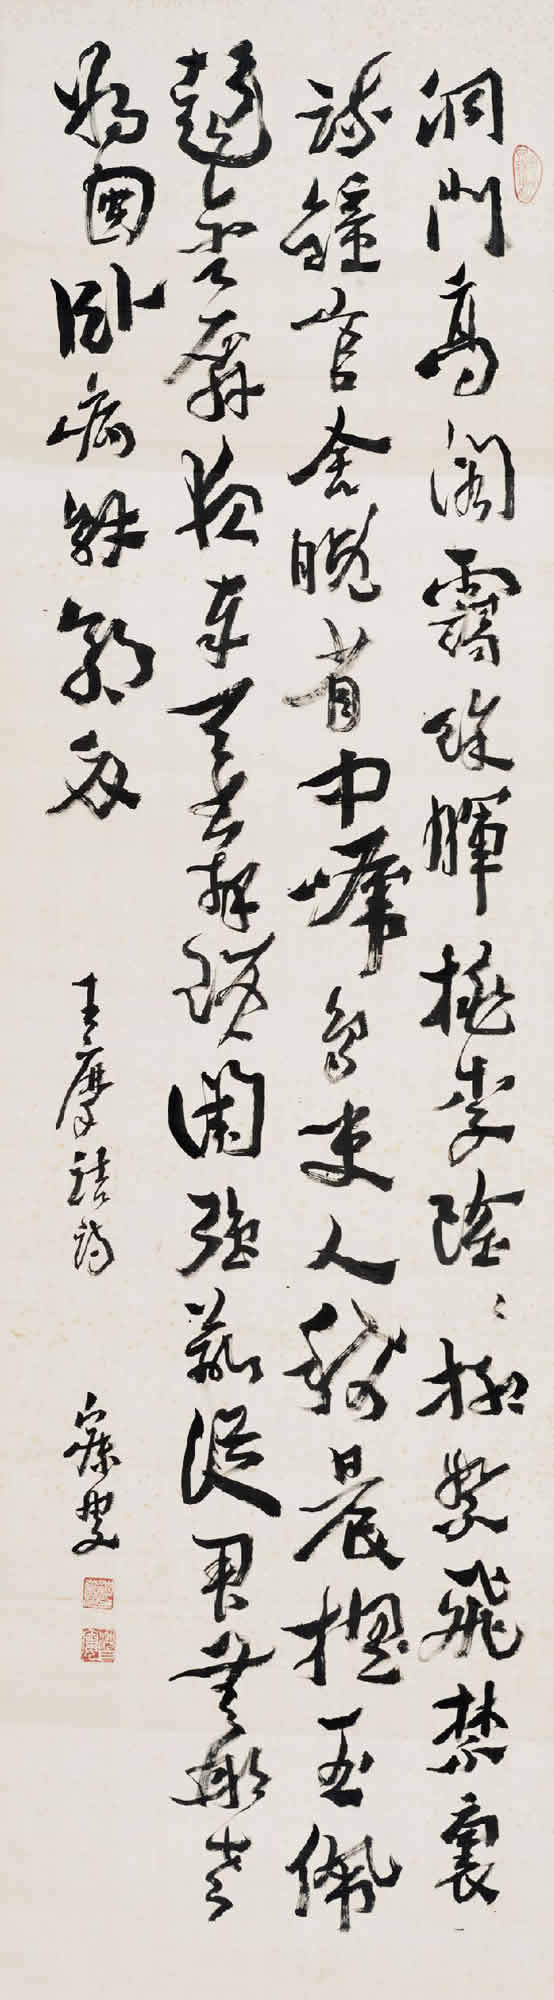 洞門高閣靄餘暉桃李陰〻柳絮飛禁裏
疏鐘官舍晚省中啼鳥吏人稀晨摇玉佩
趨金殿奉天書拜瑣闈強欲從君無那老
將因臥病解朝衣
王摩詰詩
寐叟